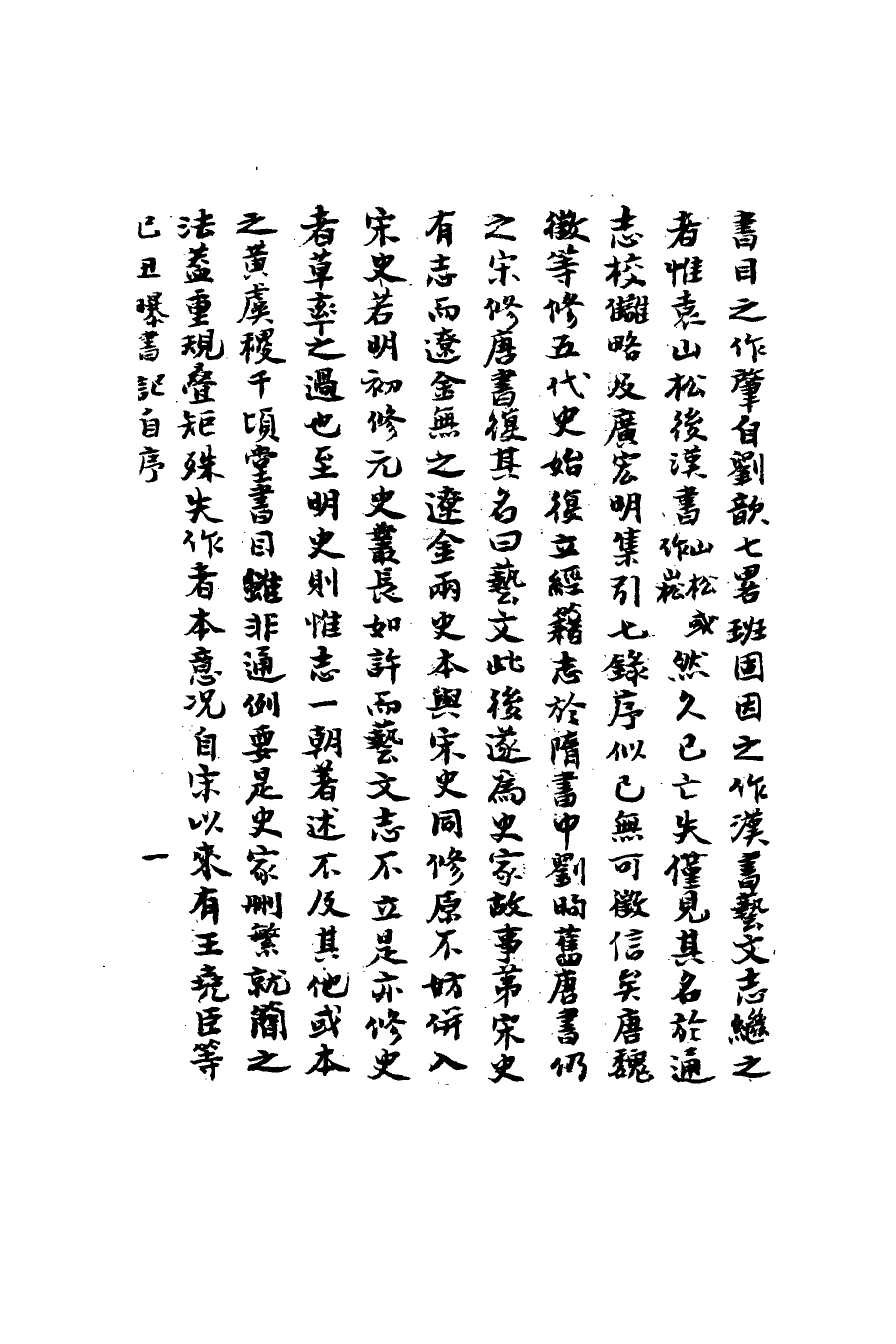 書目之作肈自劉歆七畧班固因之作漢書藝文志繼之
者惟袁山松後漢書山松或作崧然久已亡失僅見其名於通
志校讎略及廣宏明集引七錄序似已無可徵信矣唐魏
徵等修五代史始復立經籍志於隋書中劉昫舊唐書仍
之宋修唐書復其名曰藝文此後遂爲史家故事第宋史
有志而遼金無之遼金兩史本與宋史同修原不妨併入
宋史若明初修元史叢長如許而藝文志不立是亦修史
者草率之過也至明史則惟志一朝著述不及其他或本
之黃虞稷千頃堂書目雖非通例要是史家刪繁就簡之
法葢重規疊矩殊失作者本意況自宋以來有王堯臣等
己丑曝書記自序
一